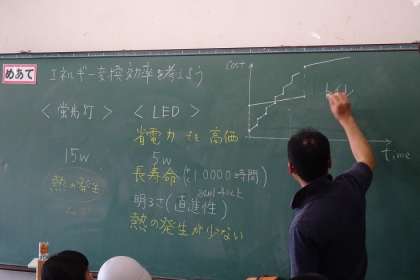 めあて
エネルギー変換効率を考えよう
＜蛍光灯＞
15w
熱の発生
＜LED＞
省電力 でも 高価
5w
長寿命(10000時間)
明るさ(直進性)
熱の発生が少ない
cost
time